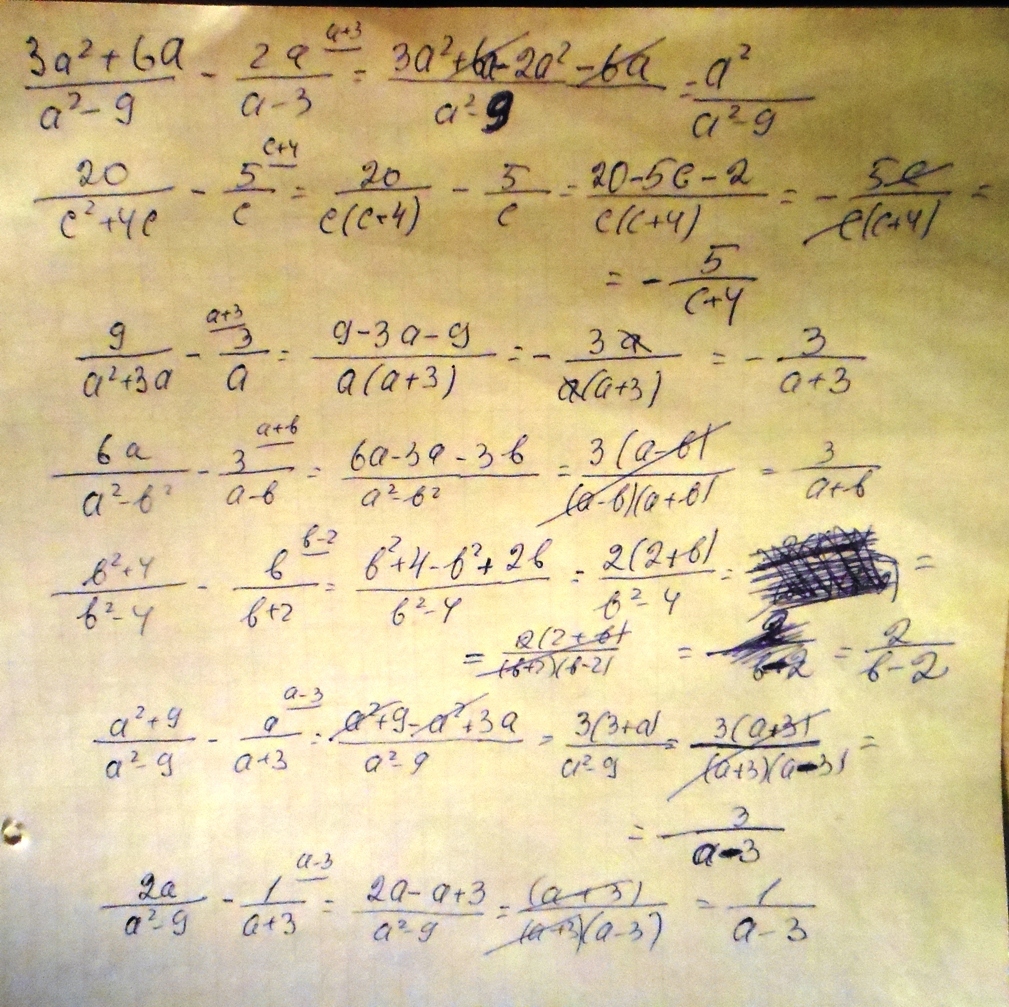 (3a²+6a)/(a²-9) - 2a/(a-3) [a+3] = (3a²+6a-2a²-6a)/(a²-9) = a²/(a²-9)
20/(c²+4c) - 5/c [c+4] = 20/(c(c+4)) - 5/c = (20-5c-2)/(c(c+4)) = - 5c/(c(c+4)) =
= - 5/(c+4)
9/(a²+3a) - 3/a [a+3] = (9-3a-9)/(a(a+3)) = - 3a/(a(a+3)) = - 3/(a+3)
6a/(a²-b²) - 3/(a-b) [a+b] = (6a-3a-3b)/(a²-b²) = 3(a-b)/((a-b)(a+b)) = 3/(a+b)
(b²+4)/(b²-4) - b/(b+2) [b-2] = (b²+4-b²+2b)/(b²-4) = 2(2+b)/(b²-4) = =
= 2(2+b)/((b+2)(b-2)) = = 2/(b-2)
(a²+9)/(a²-9) - a/(a+3) [a-3] = (a²+9-a²+3a)/(a²-9) = 3(3+a)/(a²-9) = 3(a+3)/((a+3)(a-3)) =
= 3/(a-3)
2a/(a²-9) - 1/(a+3) [a-3] = (2a-a+3)/(a²-9) = (a+3)/((a+3)(a-3)) = 1/(a-3)